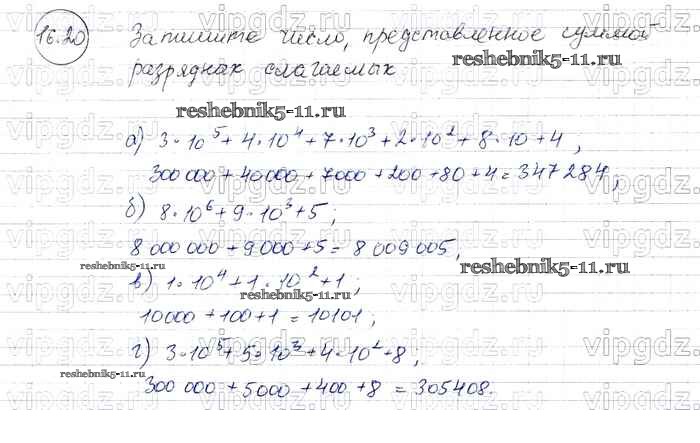 16.20 Запишите число, представленное суммой
разрядных слагаемых
reshebnik5-11.ru
reshebnik5-11.ru
а) 3·10⁵+4·10⁴+7·10³+2·10²+8·10+4,
300 000+40000+7000+200+80+4=347 284,
б) 8·10⁶+9·10³+5;
8 000 000+9000+5=8 009 005,
reshebnik5-11.ru
reshebnik5-11.ru
в) 1·10⁴+1·10²+1;
reshebnik5-11.ru
10000+100+1=10101;
г) 3·10⁵+5·10³+4·10²+8;
reshebnik5-11.ru
300 000+5000+400+8=305408.
vipgdz.com